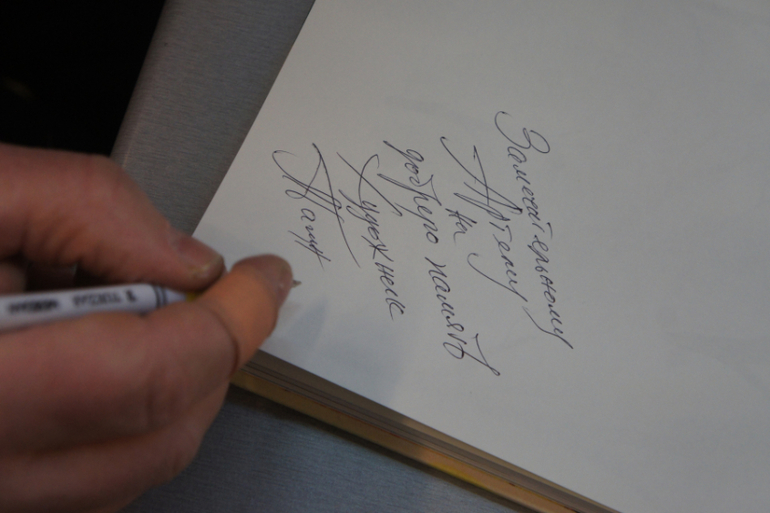 Замечательному
Артему
на
добрую память
Художник